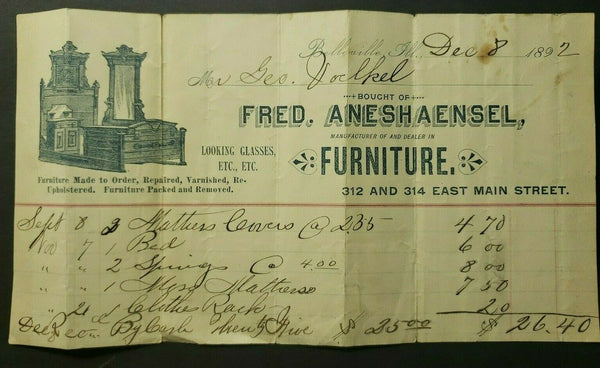 Belleville, Ill., Dec 8 1892
Mr Geo. Voelkel
BOUGHT OF
FRED. ANESHAENSEL,
MANUFACTURER OF AND DEALER IN
LOOKING GLASSES,
ETC., ETC.
FURNITURE.
Furniture Made to Order, Repaired, Varnished, Re-
Upholstered. Furniture Packed and Removed.
312 AND 314 EAST MAIN STREET.
Sept 8 2 Mattress Covers @ 235 4 70
Nov 7 1 Bed 6 00
" " 2 Springs @ 4.00 8 00
" " 1 Moss Mattress 7 50
" 21 1 Clothes Rack 20
Dec By Cash Twenty Five $ 25.00 $ 26.40